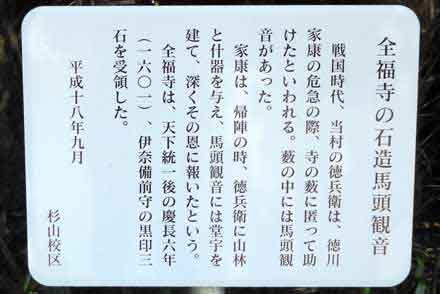 全福寺の石造馬頭観音
戦国時代、当村の徳兵衛は、徳川
家康の危急の際、寺の薮に匿って助
けたといわれる。薮の中には馬頭観
音があった。
家康は、帰陣の時、徳兵衛に山林
と什器を与え、馬頭観音には堂宇を
建て、深くその恩に報いたという。
全福寺は、天下統一後の慶長六年
（一六〇一）、伊奈備前守の黒印三
石を受領した。
平成十八年九月
杉山校区